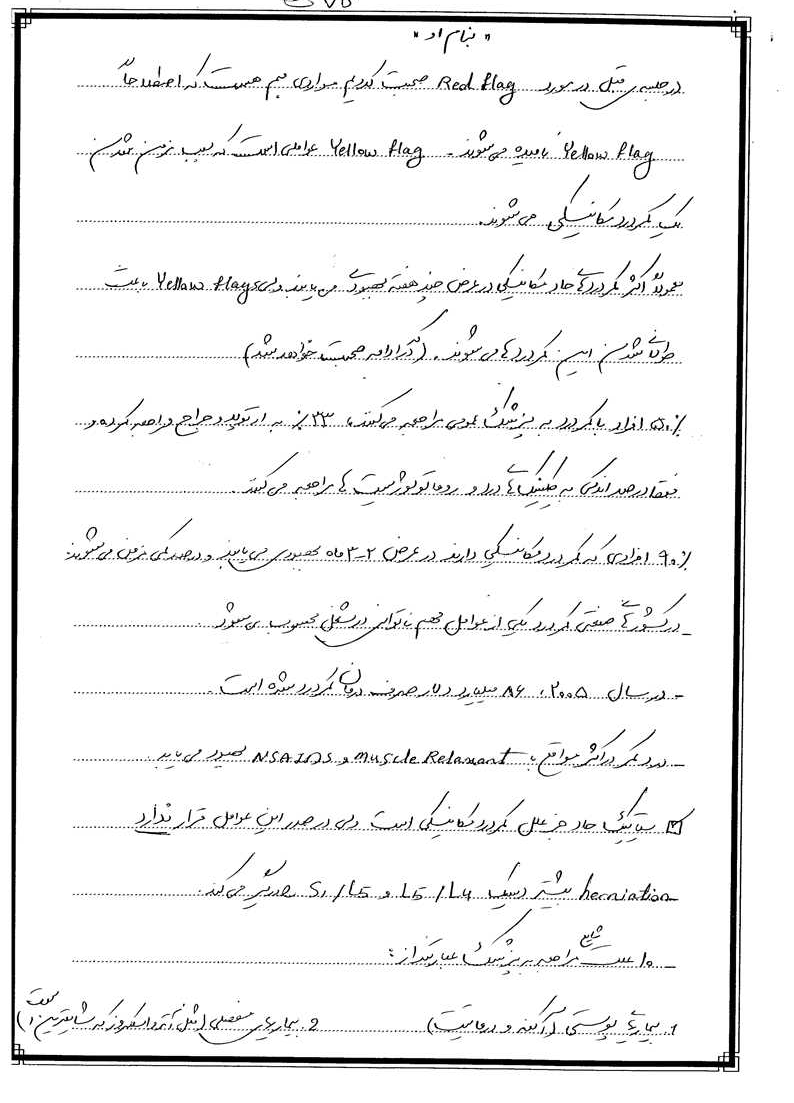 "بنام او"
در جلسه ی قبل در مورد Red flag صحبت کردیم مواردی هم هست که اصطلاحاً
Yellow flag نامیده می‌شوند. Yellow flag عواملی است که سبب مزمن شدن
یک کمردرد مکانیکی می‌شوند.
معمولاً اکثر کمردردهای حاد مکانیکی در عرض چند هفته بهبودی می‌یابند ولی Yellow flags باعث
طولانی شدن این کمردردها می‌شوند. (که در ادامه صحبت خواهد شد)
۵۰٪ افراد با کمردرد به پزشک عمومی مراجعه می‌کنند، ۳۳٪ به ارتوپد و جراح مراجعه کرده و
فقط درصد اندکی به کلینیک‌های درد و روماتولوژیست ها مراجعه می‌کنند.
۹۰٪ افرادی که کمردرد مکانیکی دارند در عرض ۲-۳ ماه بهبودی می‌یابند و درصد کمی مزمن می‌شوند.
_ در کشورهای صنعتی کمردرد یکی از عوامل مهم ناتوانی در شغل محسوب می‌شود.
_ در سال ۲۰۰۵، ۸۶ میلیارد دلار صرف درمان کمردرد شده است.
_ درد کمر در اکثر مواقع با Muscle Relaxant و NSAIDS بهبود می‌یابد.
سیاتیک حاد جز علل کمردرد مکانیکی است ولی در صدر این عوامل قرار ندارد
herniation بیشتر دیسک L5/L4 و S1/L5 را درگیر می‌کند.
_ ۱۰ علت شایع مراجعه به پزشک عبارتند از:
1. بیماریهای پوستی (آکنه و درماتیت) 2. بیماریهای مفصلی (مثل آرتروز که شایعترین علت)